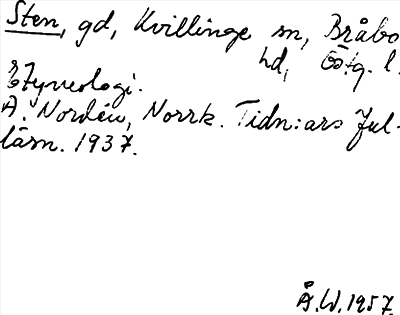 Sten, gd, Kvillinge sn, Bråbo
hd, Östg. l.
Etymologi.
A. Nordén, Norrk. Tidn:ars Jul-
läsn. 1937.
Å.W.1957.